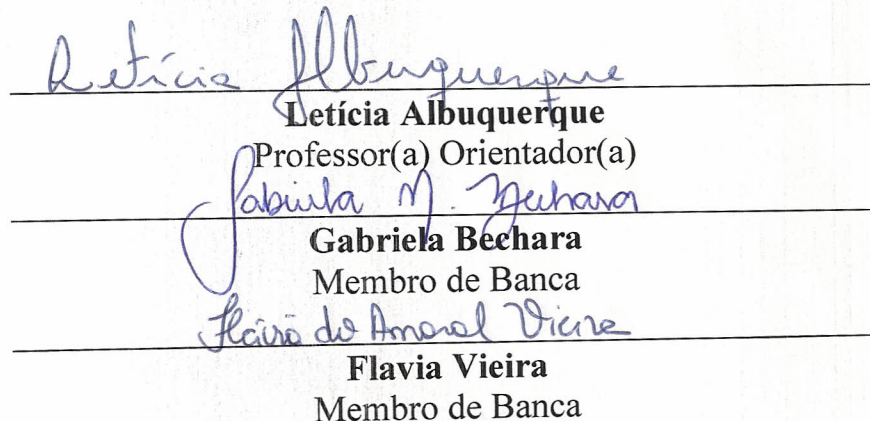 Letícia Albuquerque
Letícia Albuquerque
Professor(a) Orientador(a)
Gabriela M. Bechara
Gabriela Bechara
Membro de Banca
Flávia do Amaral Vieira
Flavia Vieira
Membro de Banca